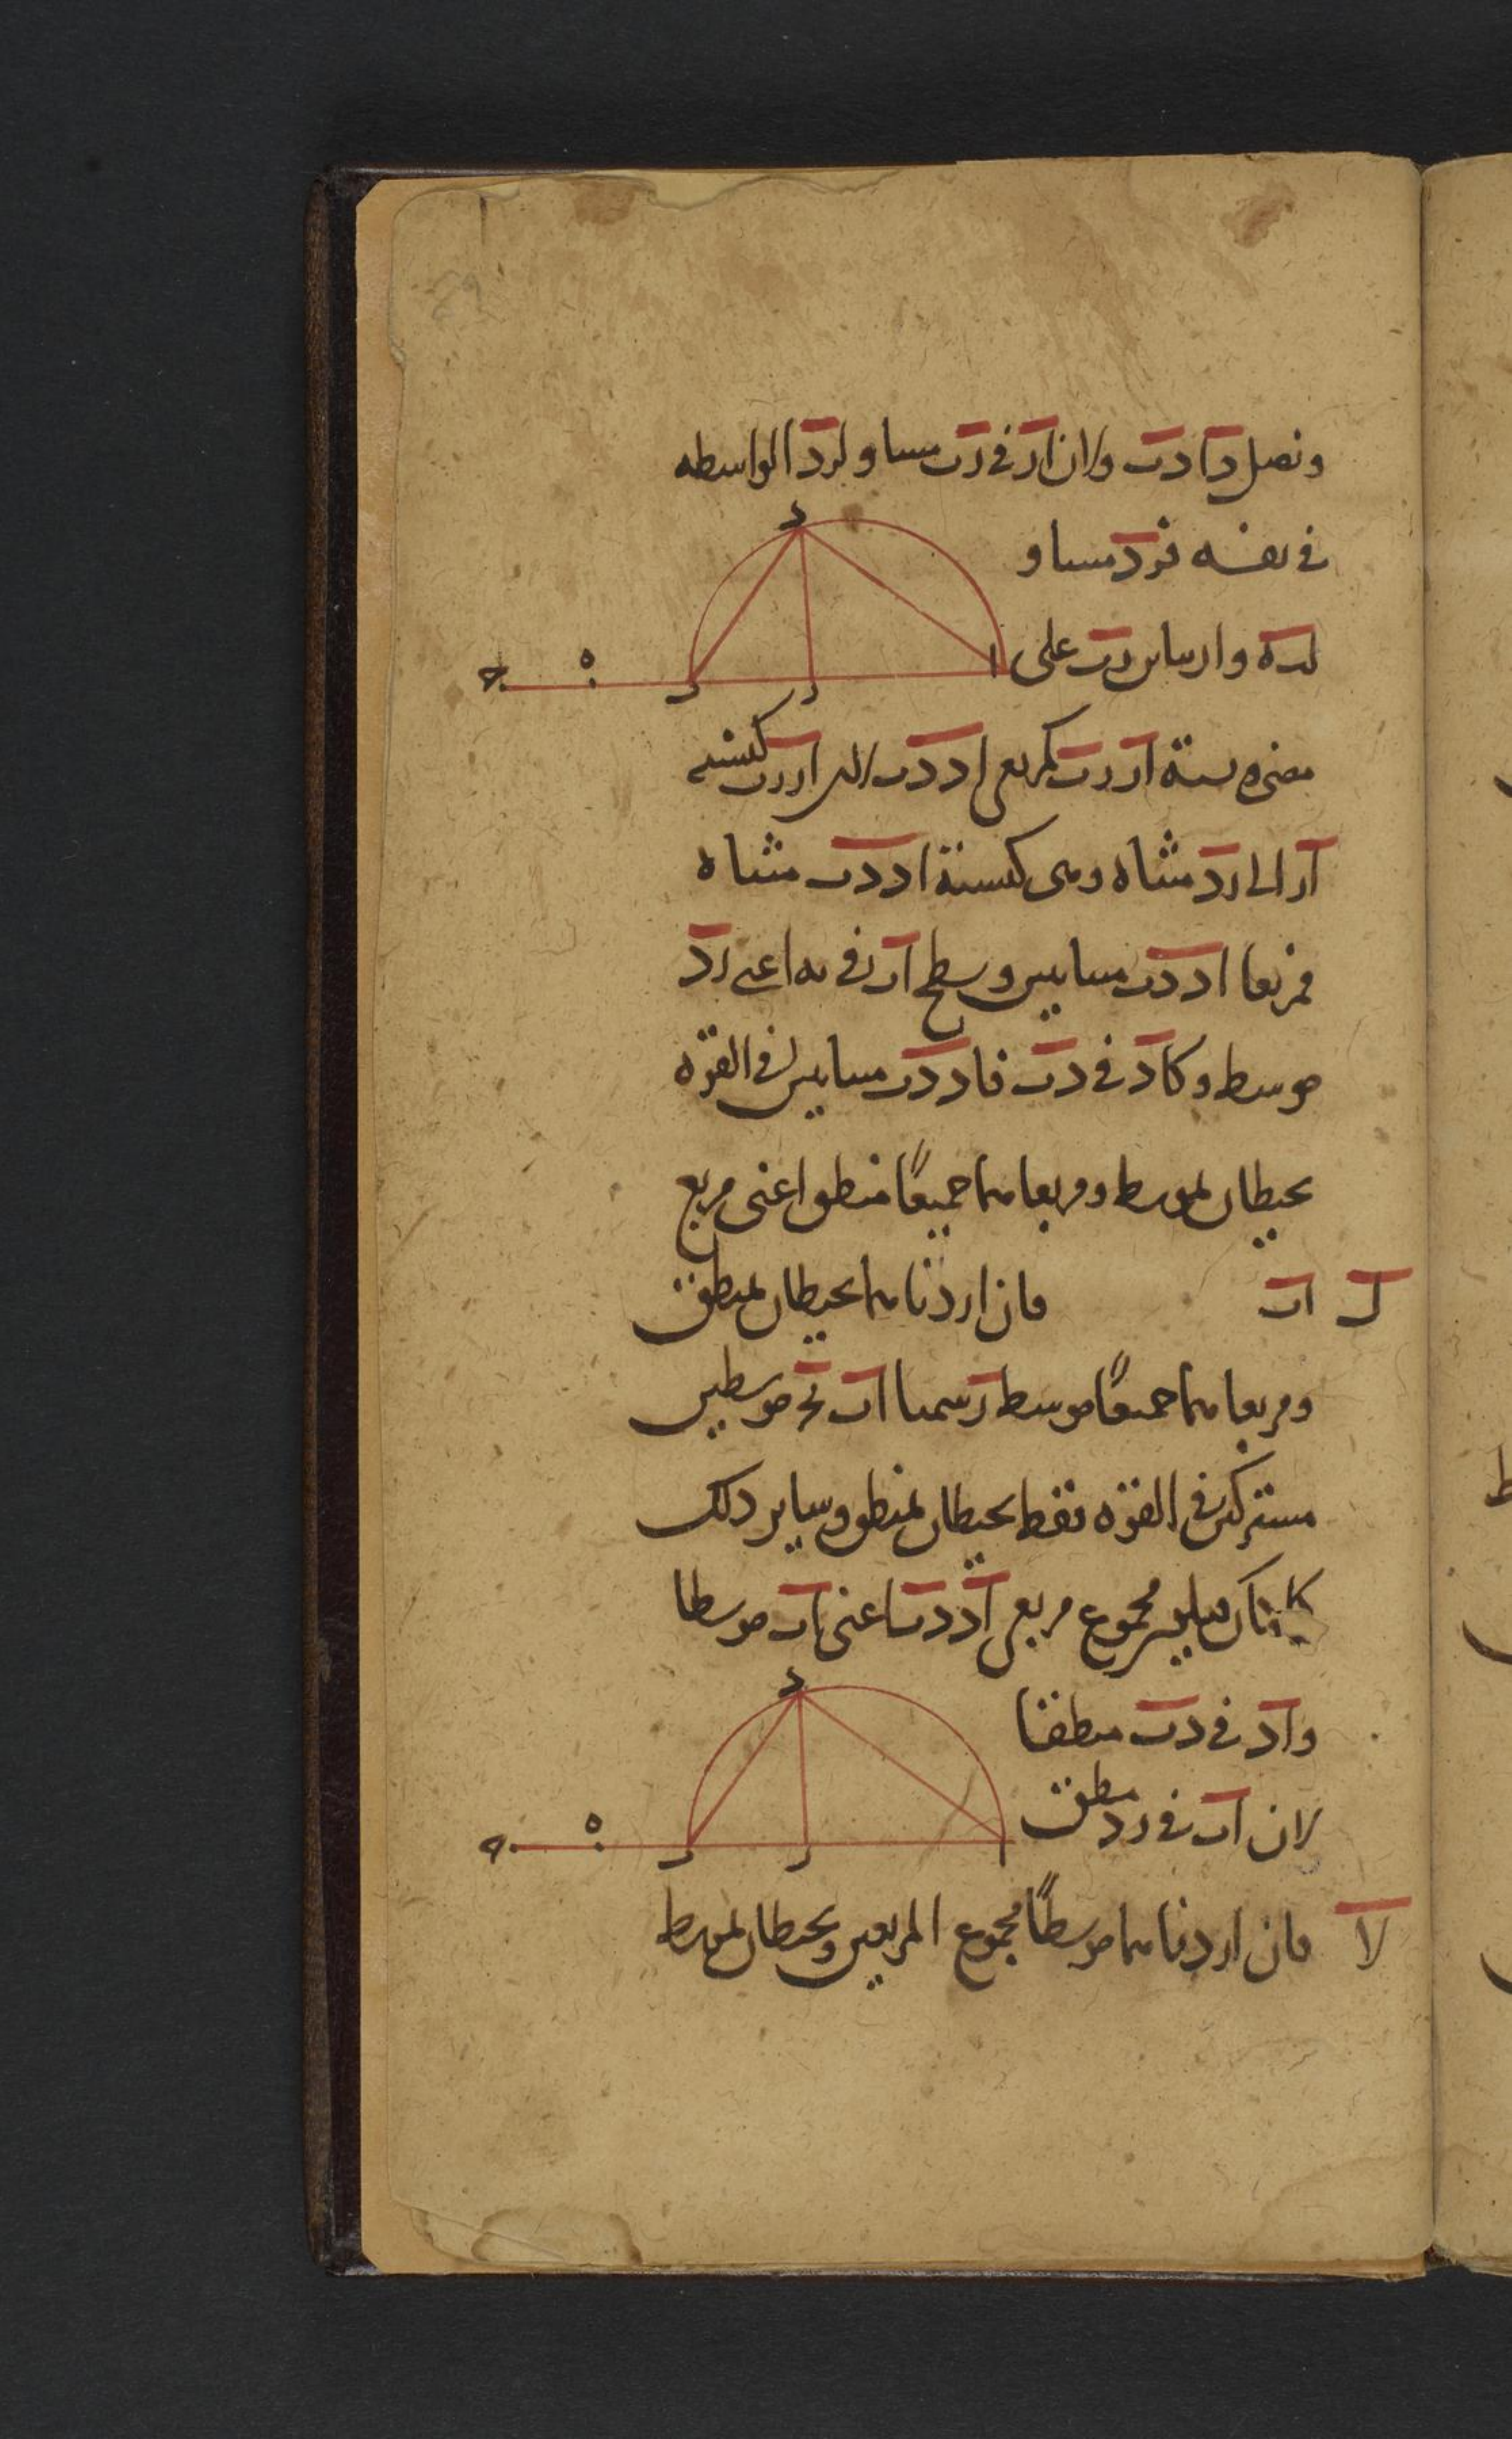 ونصل دا دب ولان ار في رب مساو لرد الواسطه
في نفسه فرد مساو
لده وار ساين رب على
نسبة ار رب كمربعي اد دب ار رب كنسبة
ار الى رد مثناه وهي كنسبة اد دب مثناه
فمربعا اد دب متباينين وسطح اب في به اعني رد
موسط وكاد في دب فاد دب متباينين في القوة
يحيطان بموسط ومربعاهما جميعًا منطق اعني مربع
اب
ل فان اردناهما يحيطان بمنطق
ومربعاهما جميعًا موسط رسمنا اب بج موسطين
مشتركين في القوة فقط يحيطان بمنطق وساير ذلك
كما كان فيكون مجموع مربعي اد دب اعني اب موسطا
واد في دب منطقا
لان اب في رد منطق
لا فان اردناهما موسطًا مجموع المربعين ويحيطان بموسط
د
ا
ر
ب
ه
ج
د
ا
ر
ب
ه
ج